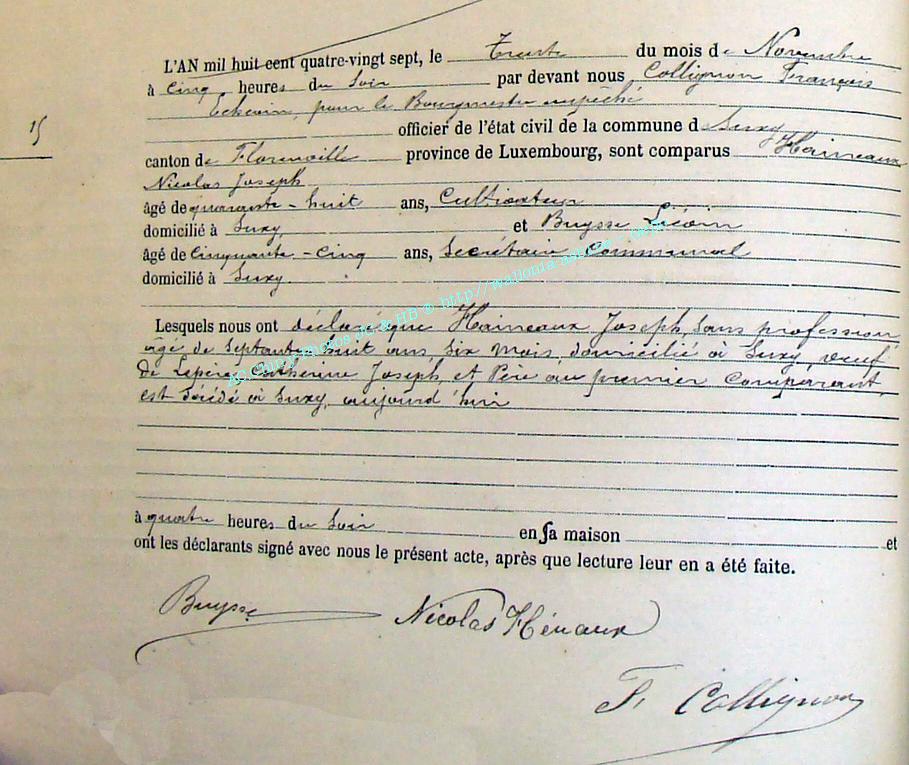 L'AN mil huit cent quatre-vingt sept, le Trente du mois de Novembre
à cinq heures du Soir par devant nous Collignon François
Echevin, pour le Bourgmestre empêché
15
officier de l'état civil de la commune de Suxy
canton de Florenville province de Luxembourg, sont comparus Haineaux
Nicolas Joseph
âgé de quarante-huit ans, Cultivateur
domicilié à Suxy et Buysse
âgé de Cinquante-Cinq ans, Secrétaire Communal
domicilié à Suxy.
Lesquels nous ont déclaré que Haineaux Joseph, Sans profession
âgé de Septante huit ans, Six mois, domicilié à Suxy, veuf
de Catherine Joseph, et Père au premier Comparant,
est décédé à Suxy, aujourd'hui
à quatre heures du Soir en sa maison et
ont les déclarants signé avec nous le présent acte, après que lecture leur en a été faite.
Buysse Nicolas Hénaux
F. Collignon